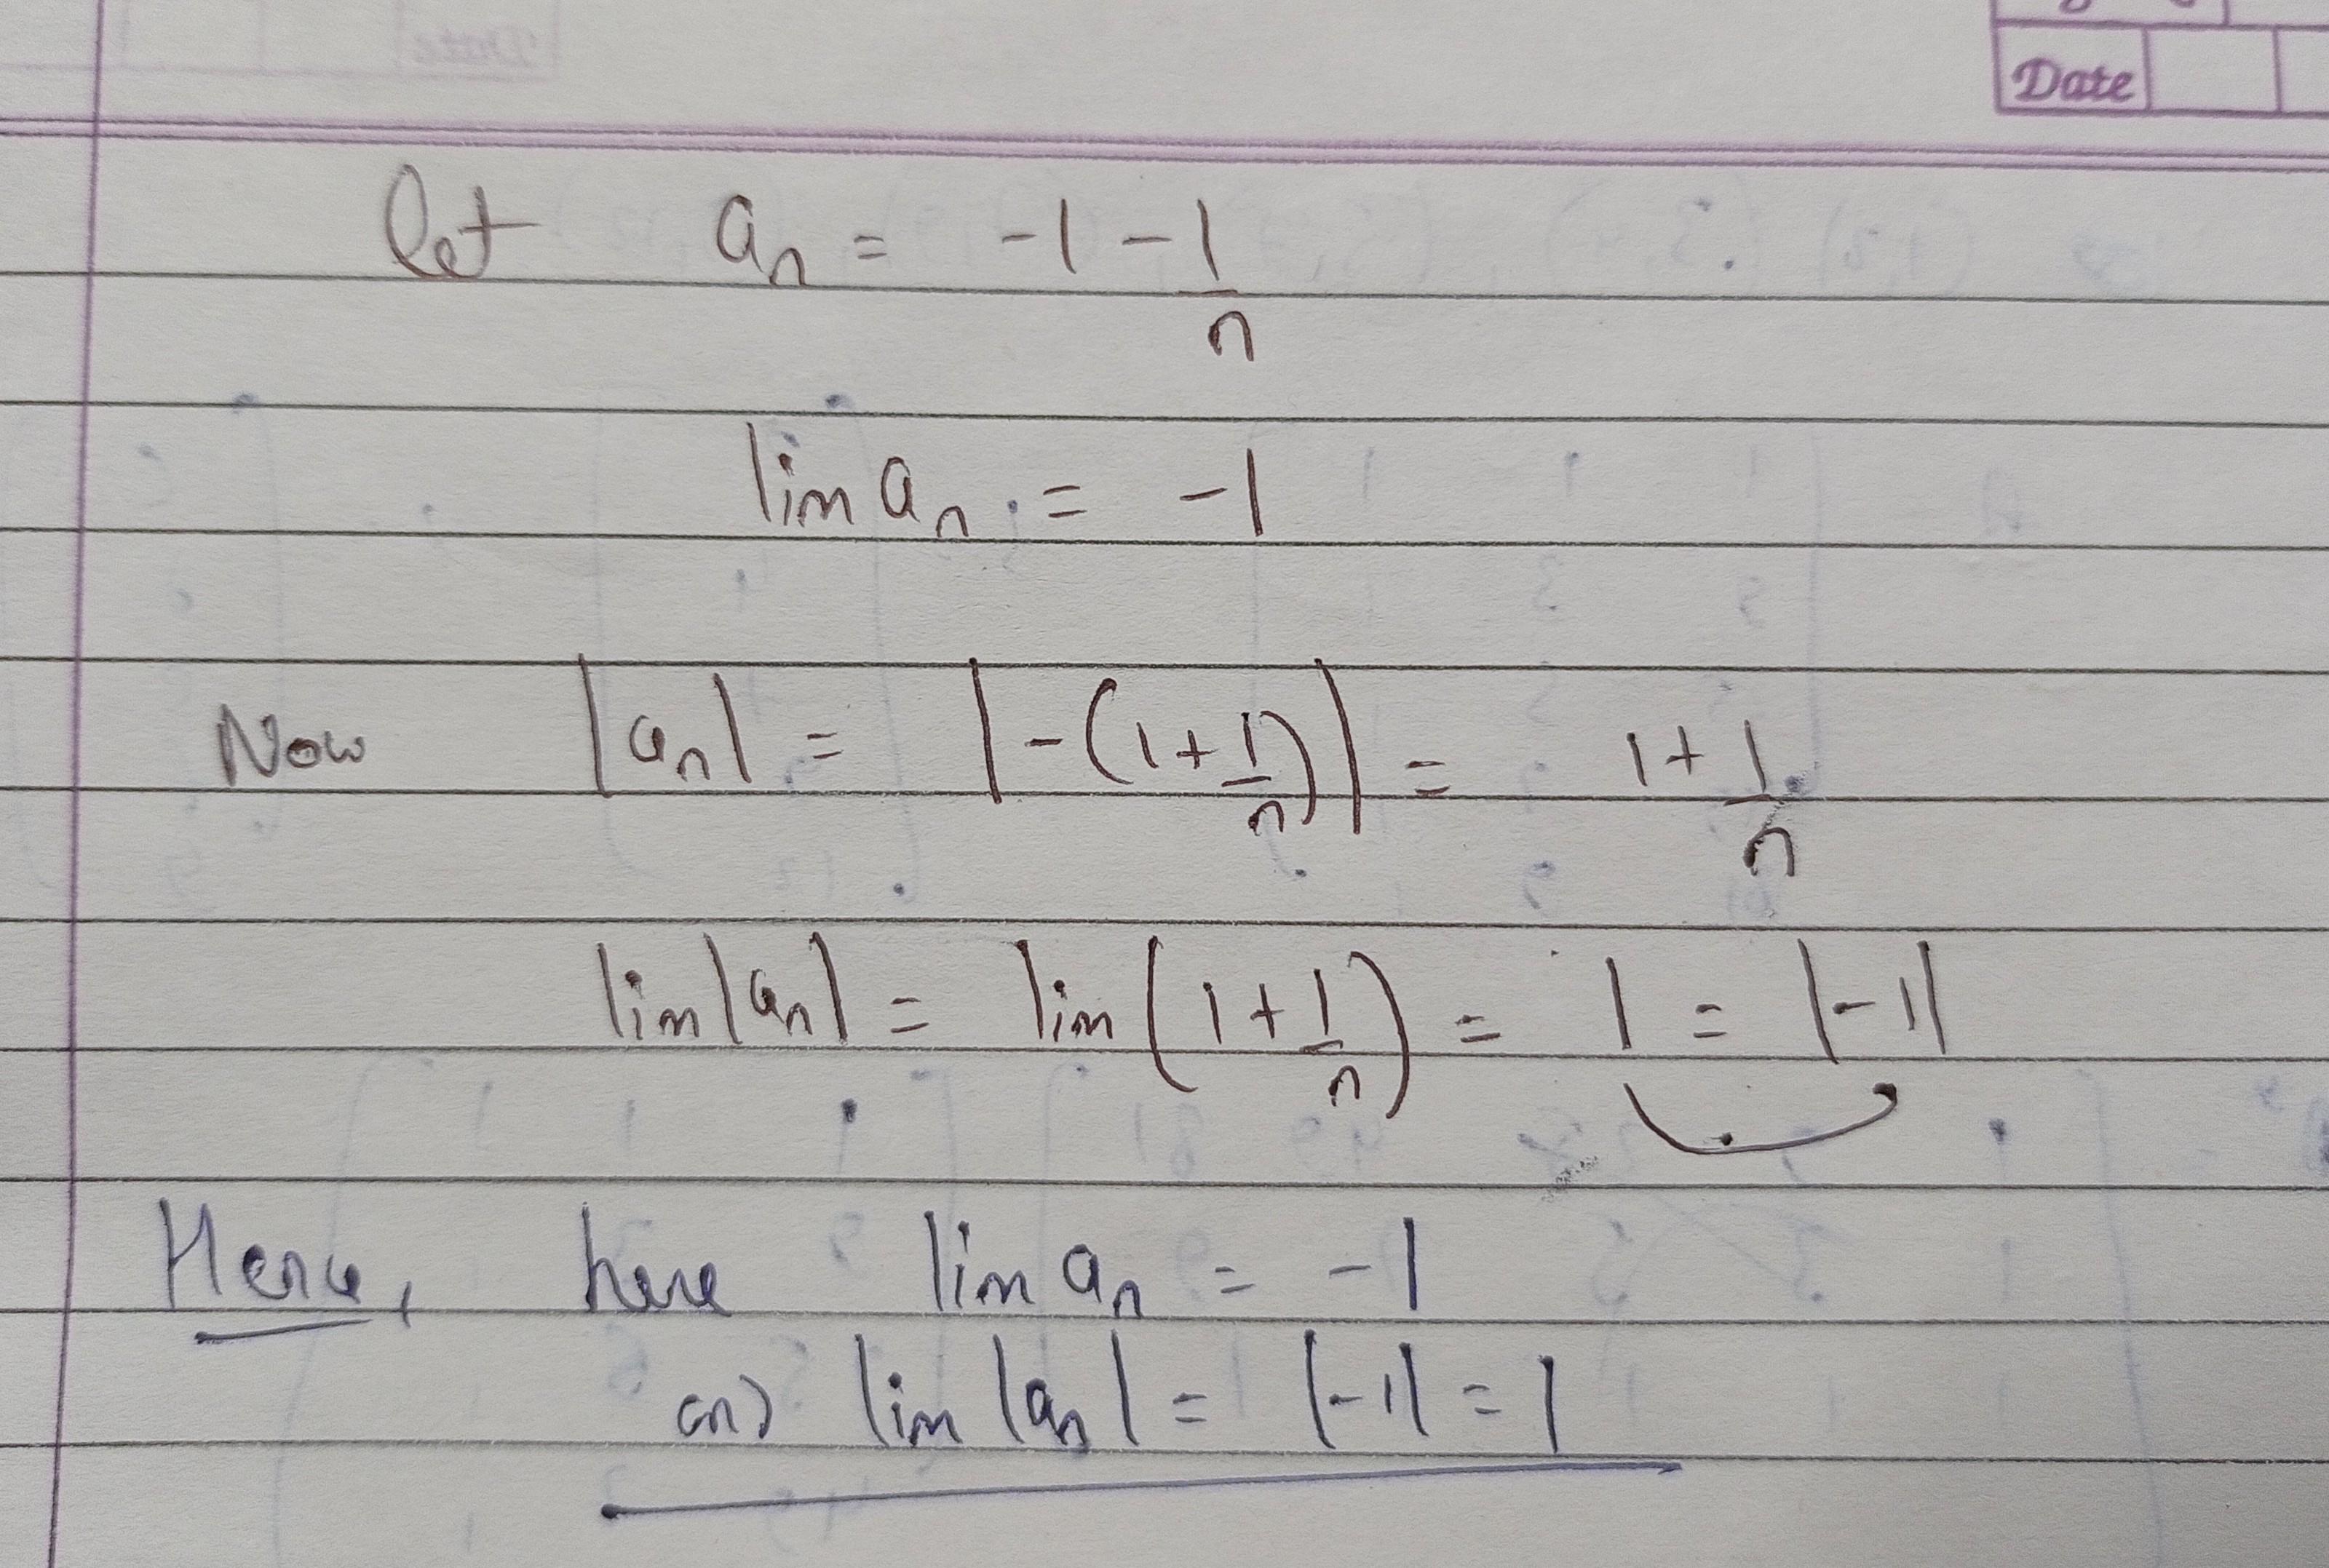 Date
let aₙ = -1 - 1/n
lim aₙ = -1
Now |aₙ| = |-(1+1/n)| = 1+1/n
lim|aₙ| = lim(1+1/n) = 1 = |-1|
Hence, here lim aₙ = -1
and lim |aₙ| = |-1| = 1